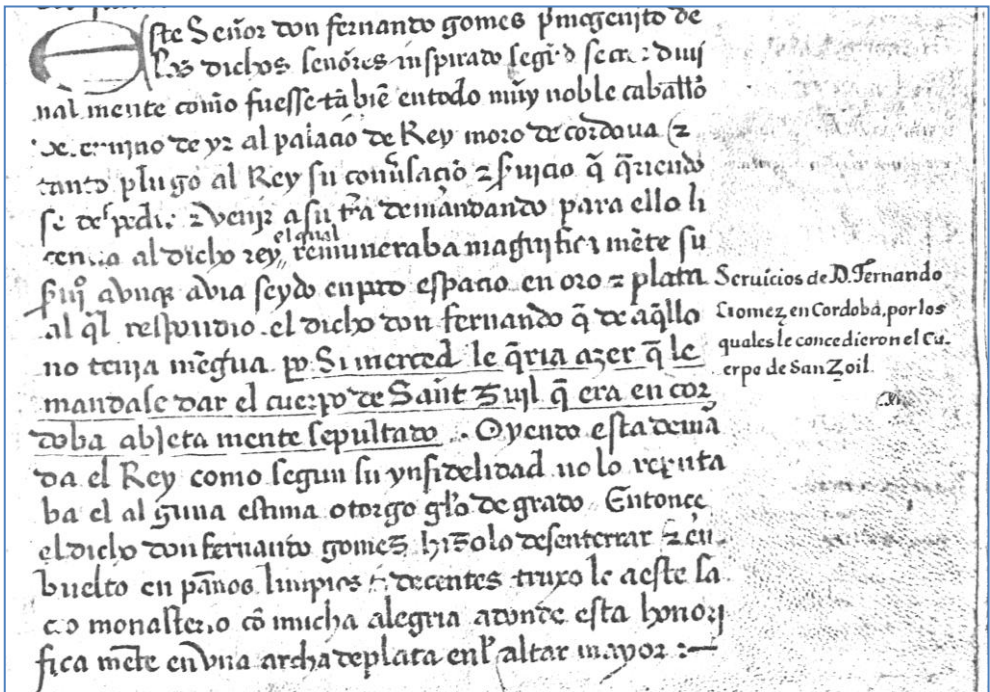 Este Señor don fernando gomes p̄mogenito de
los dichos señores inspirado segū d
nal mente como fuesse tā biē en todo muy noble caballo
de yr al palacio de Rey moro de cordova (z
tanto plugo al Rey su conūsacio z s̄uicio q̄ q̄riendo
se despedir z venir a su tr̄a demandando para ello li
cencia al dicho rey el qual remuneraba magnifica mēte su
s̄uiº avnq̄ avia seydo en pco espacio en oro z plata
al q̄l respondio el dicho don fernando q̄ de aq̄llo
no tenia mēgua po Si merced le q̄ria azer q̄ le
mandase dar el cuerpo de Sant Zuil q̄ era en cor
doba abjeta mente sepultado .. Oyendo esta demā
da el Rey como segun su ynfidelidad no lo reputa
ba el al guna estima otorgo gelo de grado Entonce
el dicho don fernando gomez hizolo desenterrar z en
buelto en paños limpios z decentes truxo le a este sa
c o monasterio cō mucha alegria adonde esta honori
fica mēte en vna archa de plata enl altar mayor :—
Servicios de D. Fernando
Gomez en Cordoba, por los
quales le concedieron el Cu-
erpo de San Zoil.